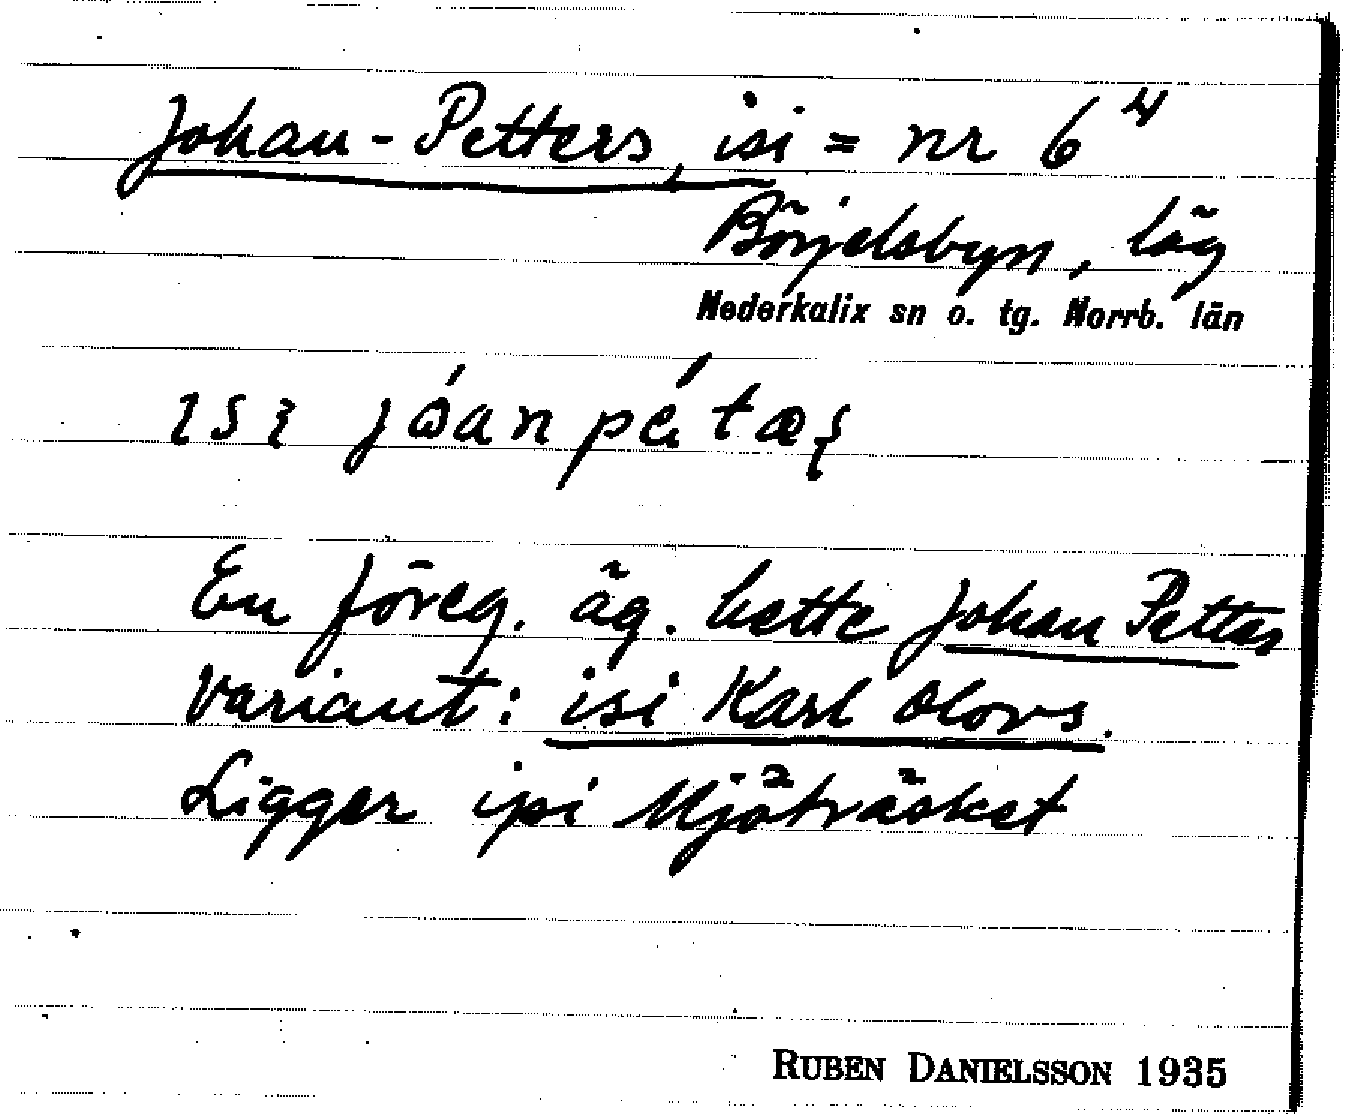 Johan-Petters, isi = nr 6⁴
Börjelsbyn, läg
Nederkalix sn o. tg. Norrb. län
ɪsɪ jóan pétæ
En föreg. äg. hette Johan Petter
Variant: isi Karl Olovs.
Ligger ipi Mjöträsket
RUBEN DANIELSSON 1935